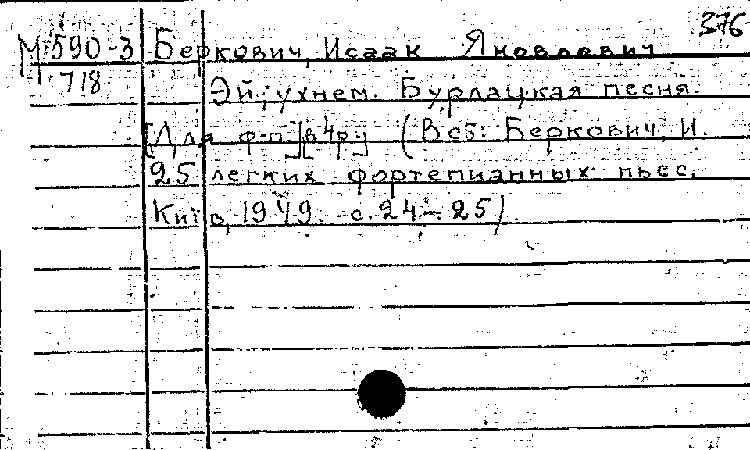 376
М 590-3 Беркович, Исаак Яковлевич
718 Эй, ухнем. Бурлацкая песня.
[Для ф-п.][в 4 р.] (В сб: Беркович, И.
25 легких фортепианных пьес.
Київ, 1949. с. 24-25)